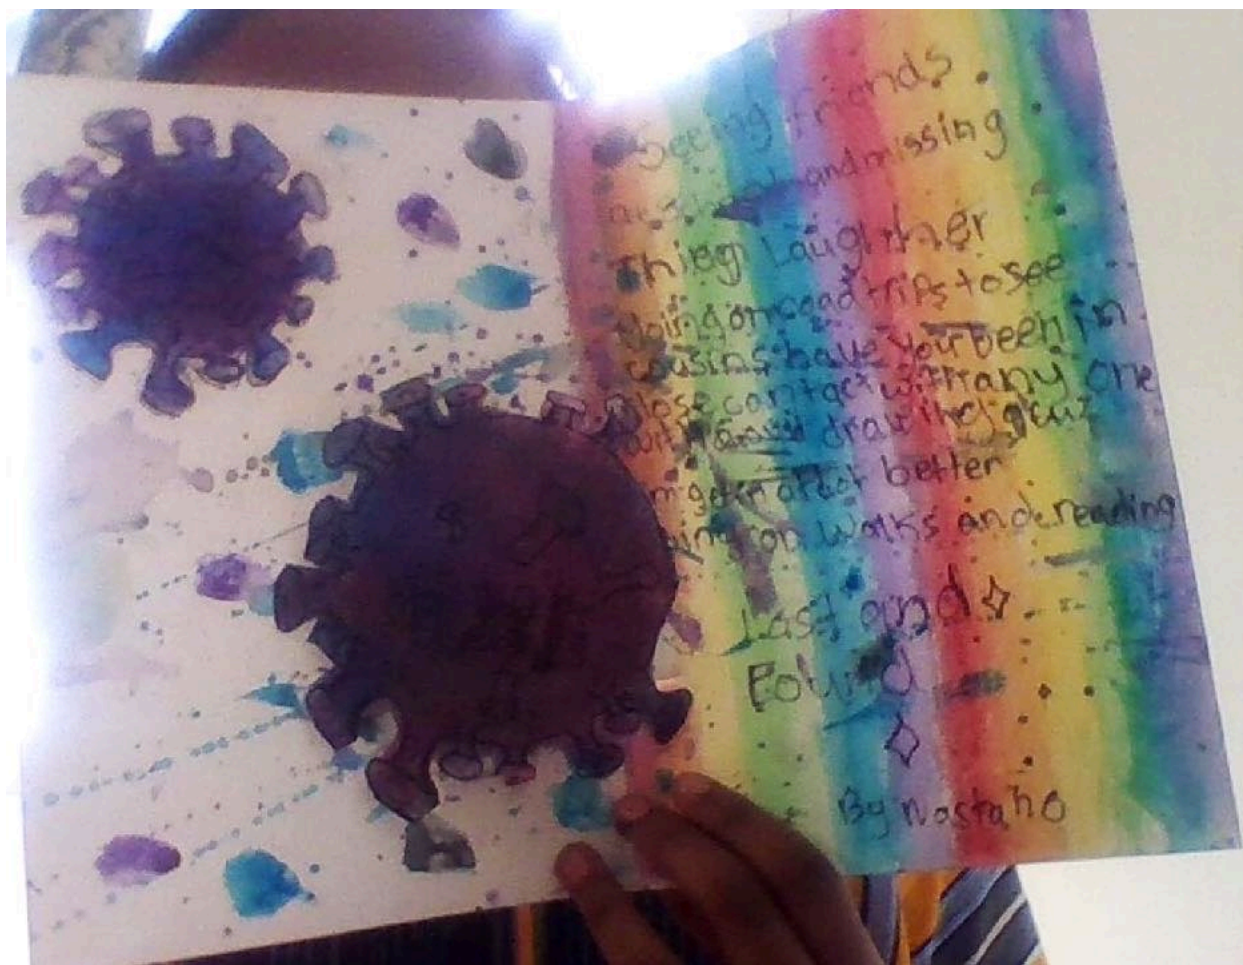 Seeing friends
and missing
Thing Laughter
going on road trips to see
cousins have you been in
close contact with any one
drawing
better
going on walks and reading
Last and
Found
By Nastaho